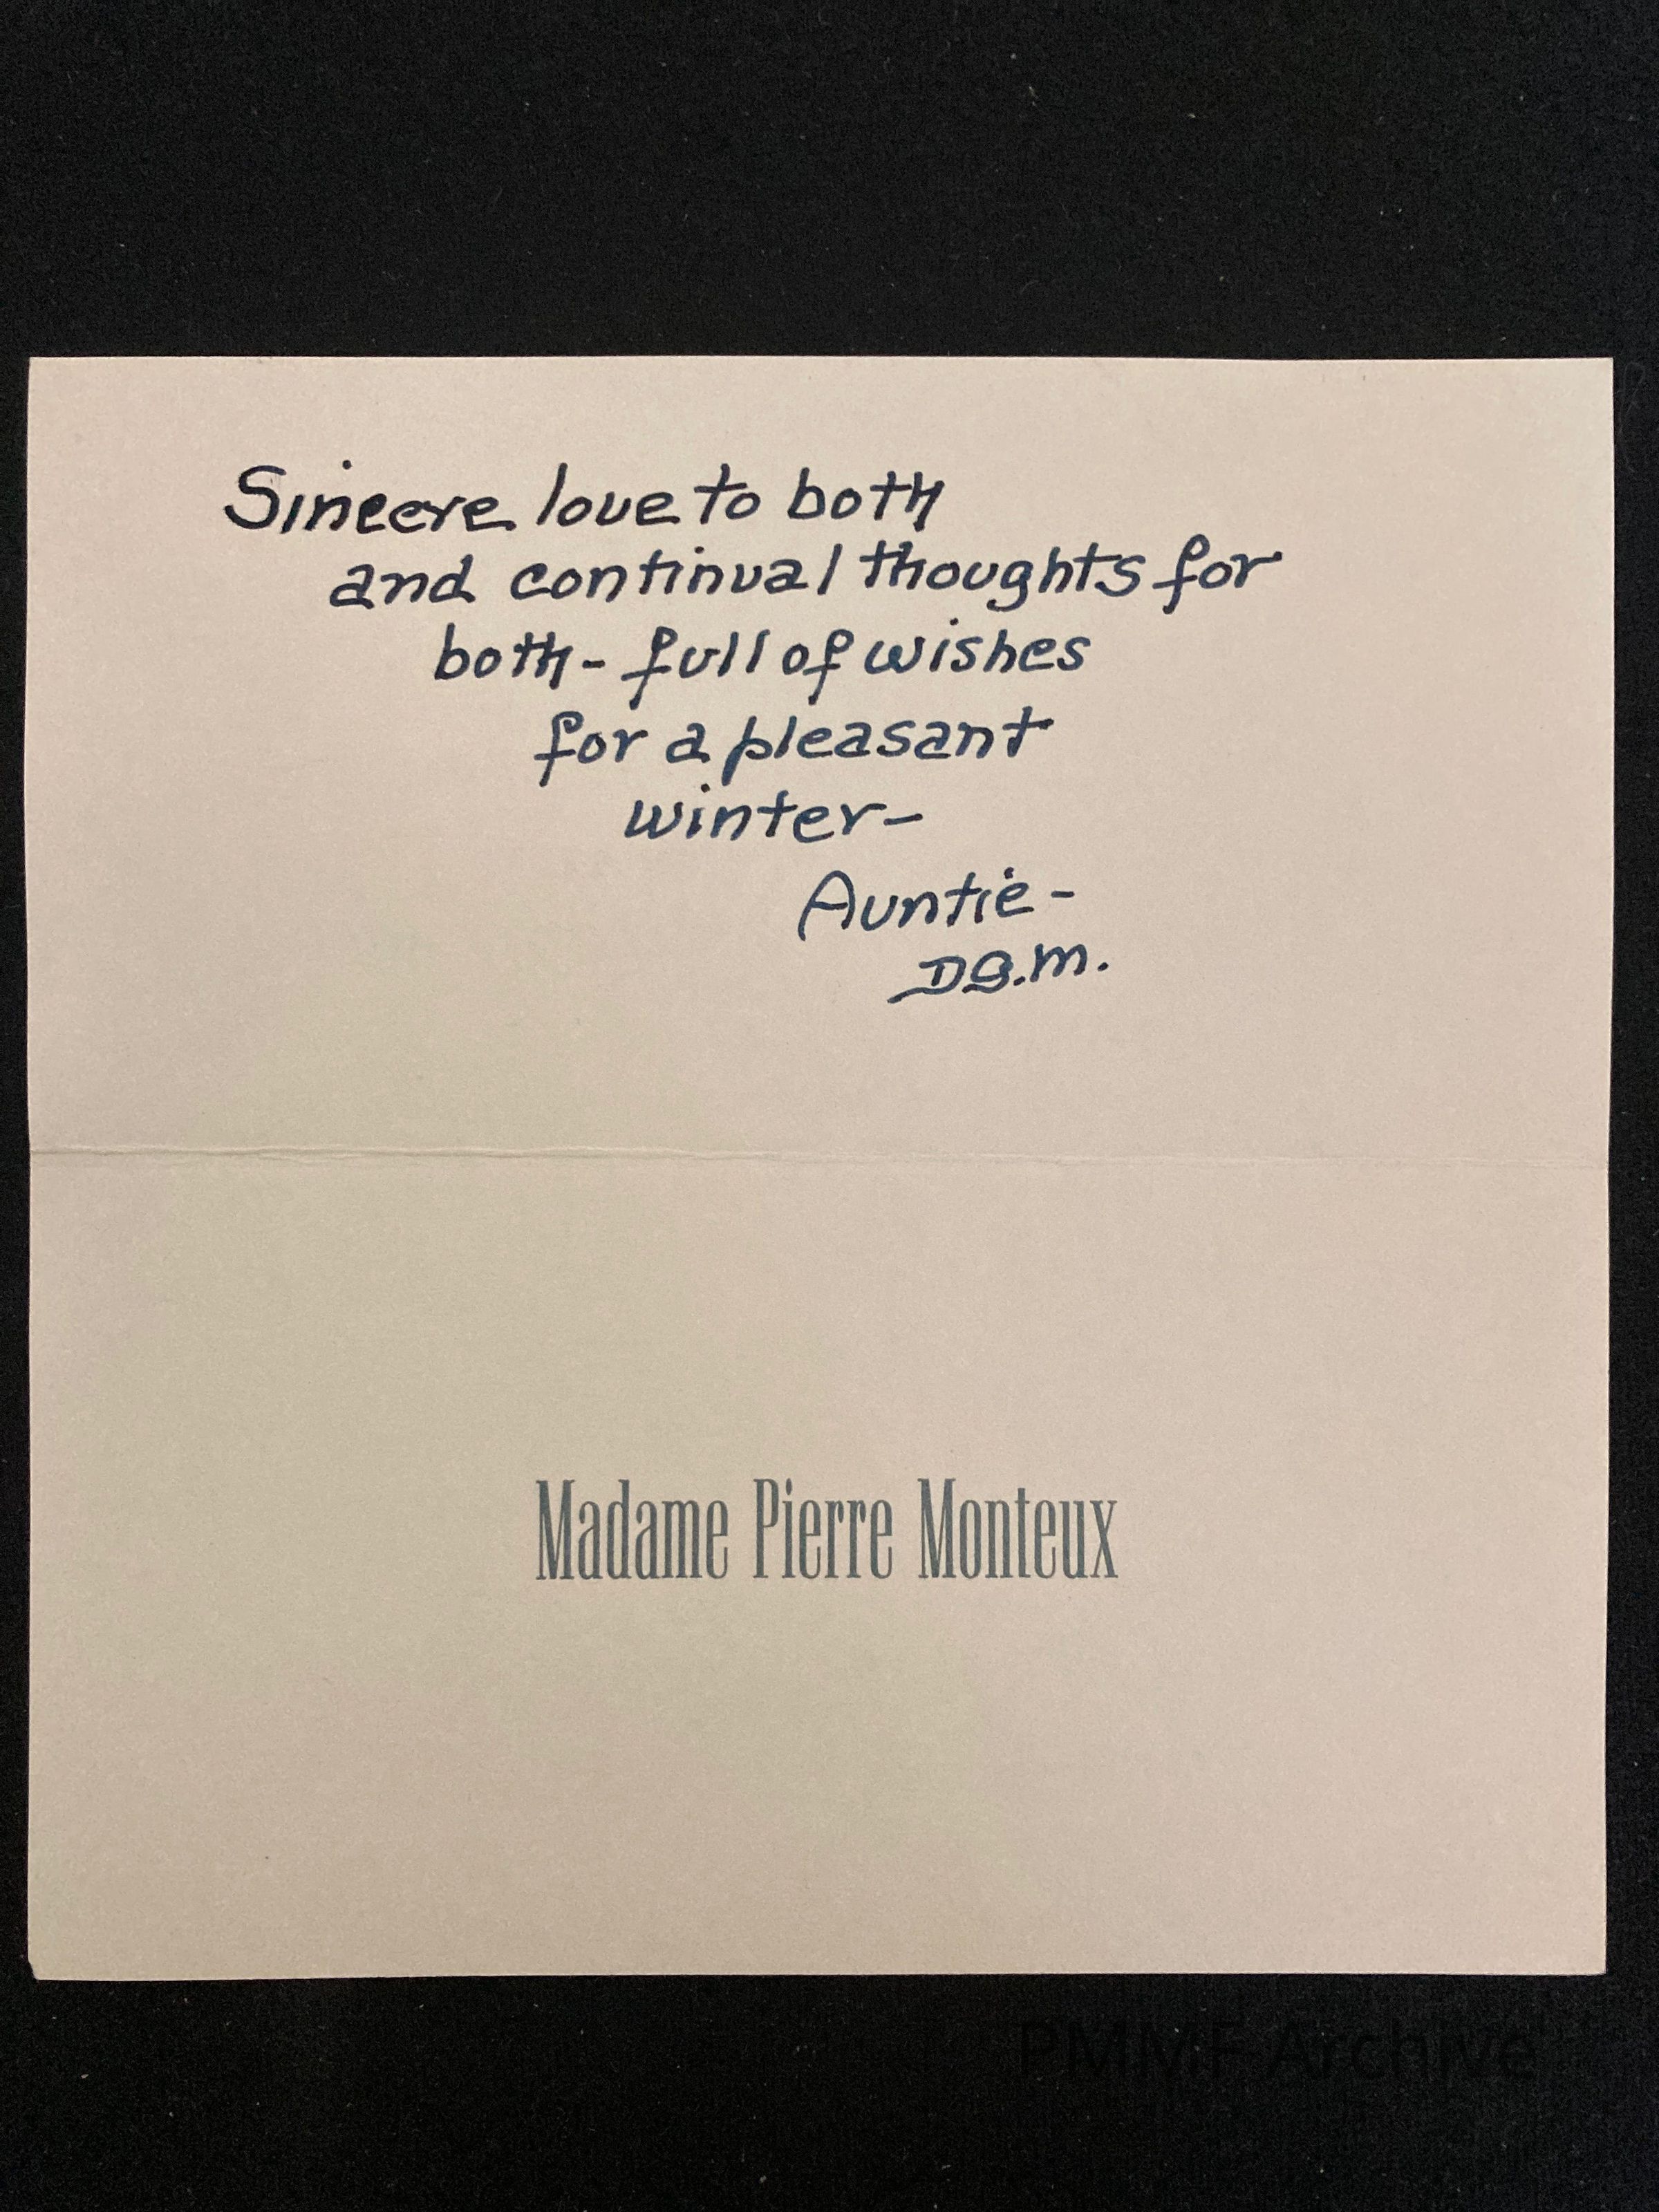 Sincere love to both
and continual thoughts for
both - full of wishes
for a pleasant
winter -
Auntie -
DG.M.
Madame Pierre Monteux
PMMF Archive